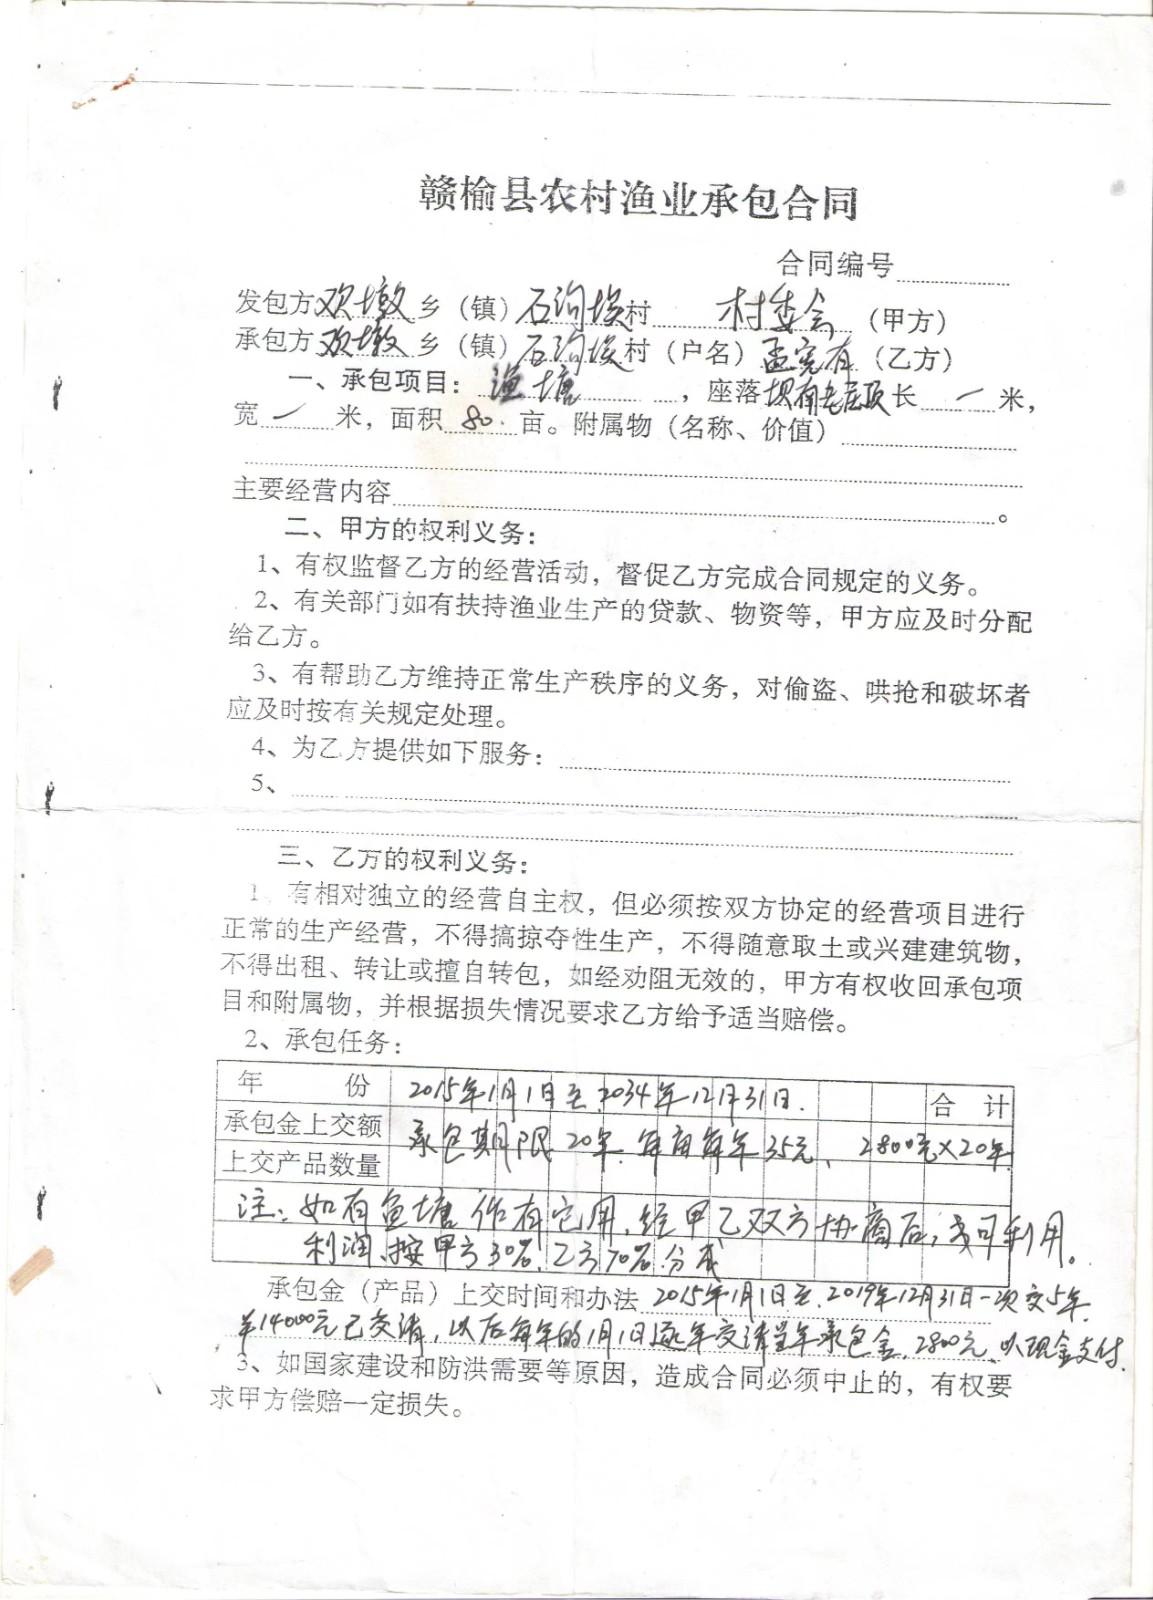 赣榆县农村渔业承包合同
合同编号
发包方欢墩乡（镇）石沟埃村 村委会（甲方）
承包方欢墩乡（镇）石沟埃村（户名）孟宪有（乙方）
一、承包项目：渔塘，座落坝南 长一米，
宽一米，面积80.亩。附属物（名称、价值）
主要经营内容。
二、甲方的权利义务：
1、有权监督乙方的经营活动，督促乙方完成合同规定的义务。
2、有关部门如有扶持渔业生产的贷款、物资等，甲方应及时分配
给乙方。
3、有帮助乙方维持正常生产秩序的义务，对偷盗、哄抢和破坏者
应及时按有关规定处理。
4、为乙方提供如下服务：
5、
三、乙方的权利义务：
1、有相对独立的经营自主权，但必须按双方协定的经营项目进行
正常的生产经营，不得搞掠夺性生产，不得随意取土或兴建建筑物，
不得出租、转让或擅自转包，如经劝阻无效的，甲方有权收回承包项
目和附属物，并根据损失情况要求乙方给予适当赔偿。
2、承包任务：
年 份 2015年1月1日至2034年12月31日. 合 计
承包金上交额 承包期限20年.年亩每年35元、2800元×20年.
上交产品数量
注：如有鱼塘作有它用，经甲乙双方协商后，或可利用。
利润、按甲方30%、乙方70%分成
承包金（产品）上交时间和办法 2015年1月1日至2019年12月31日一次交5年.
￥14000元已交清，以后每年的1月1日逐年交清当年承包金.2800元、以现金支付.
3、如国家建设和防洪需要等原因，造成合同必须中止的，有权要
求甲方偿赔一定损失。